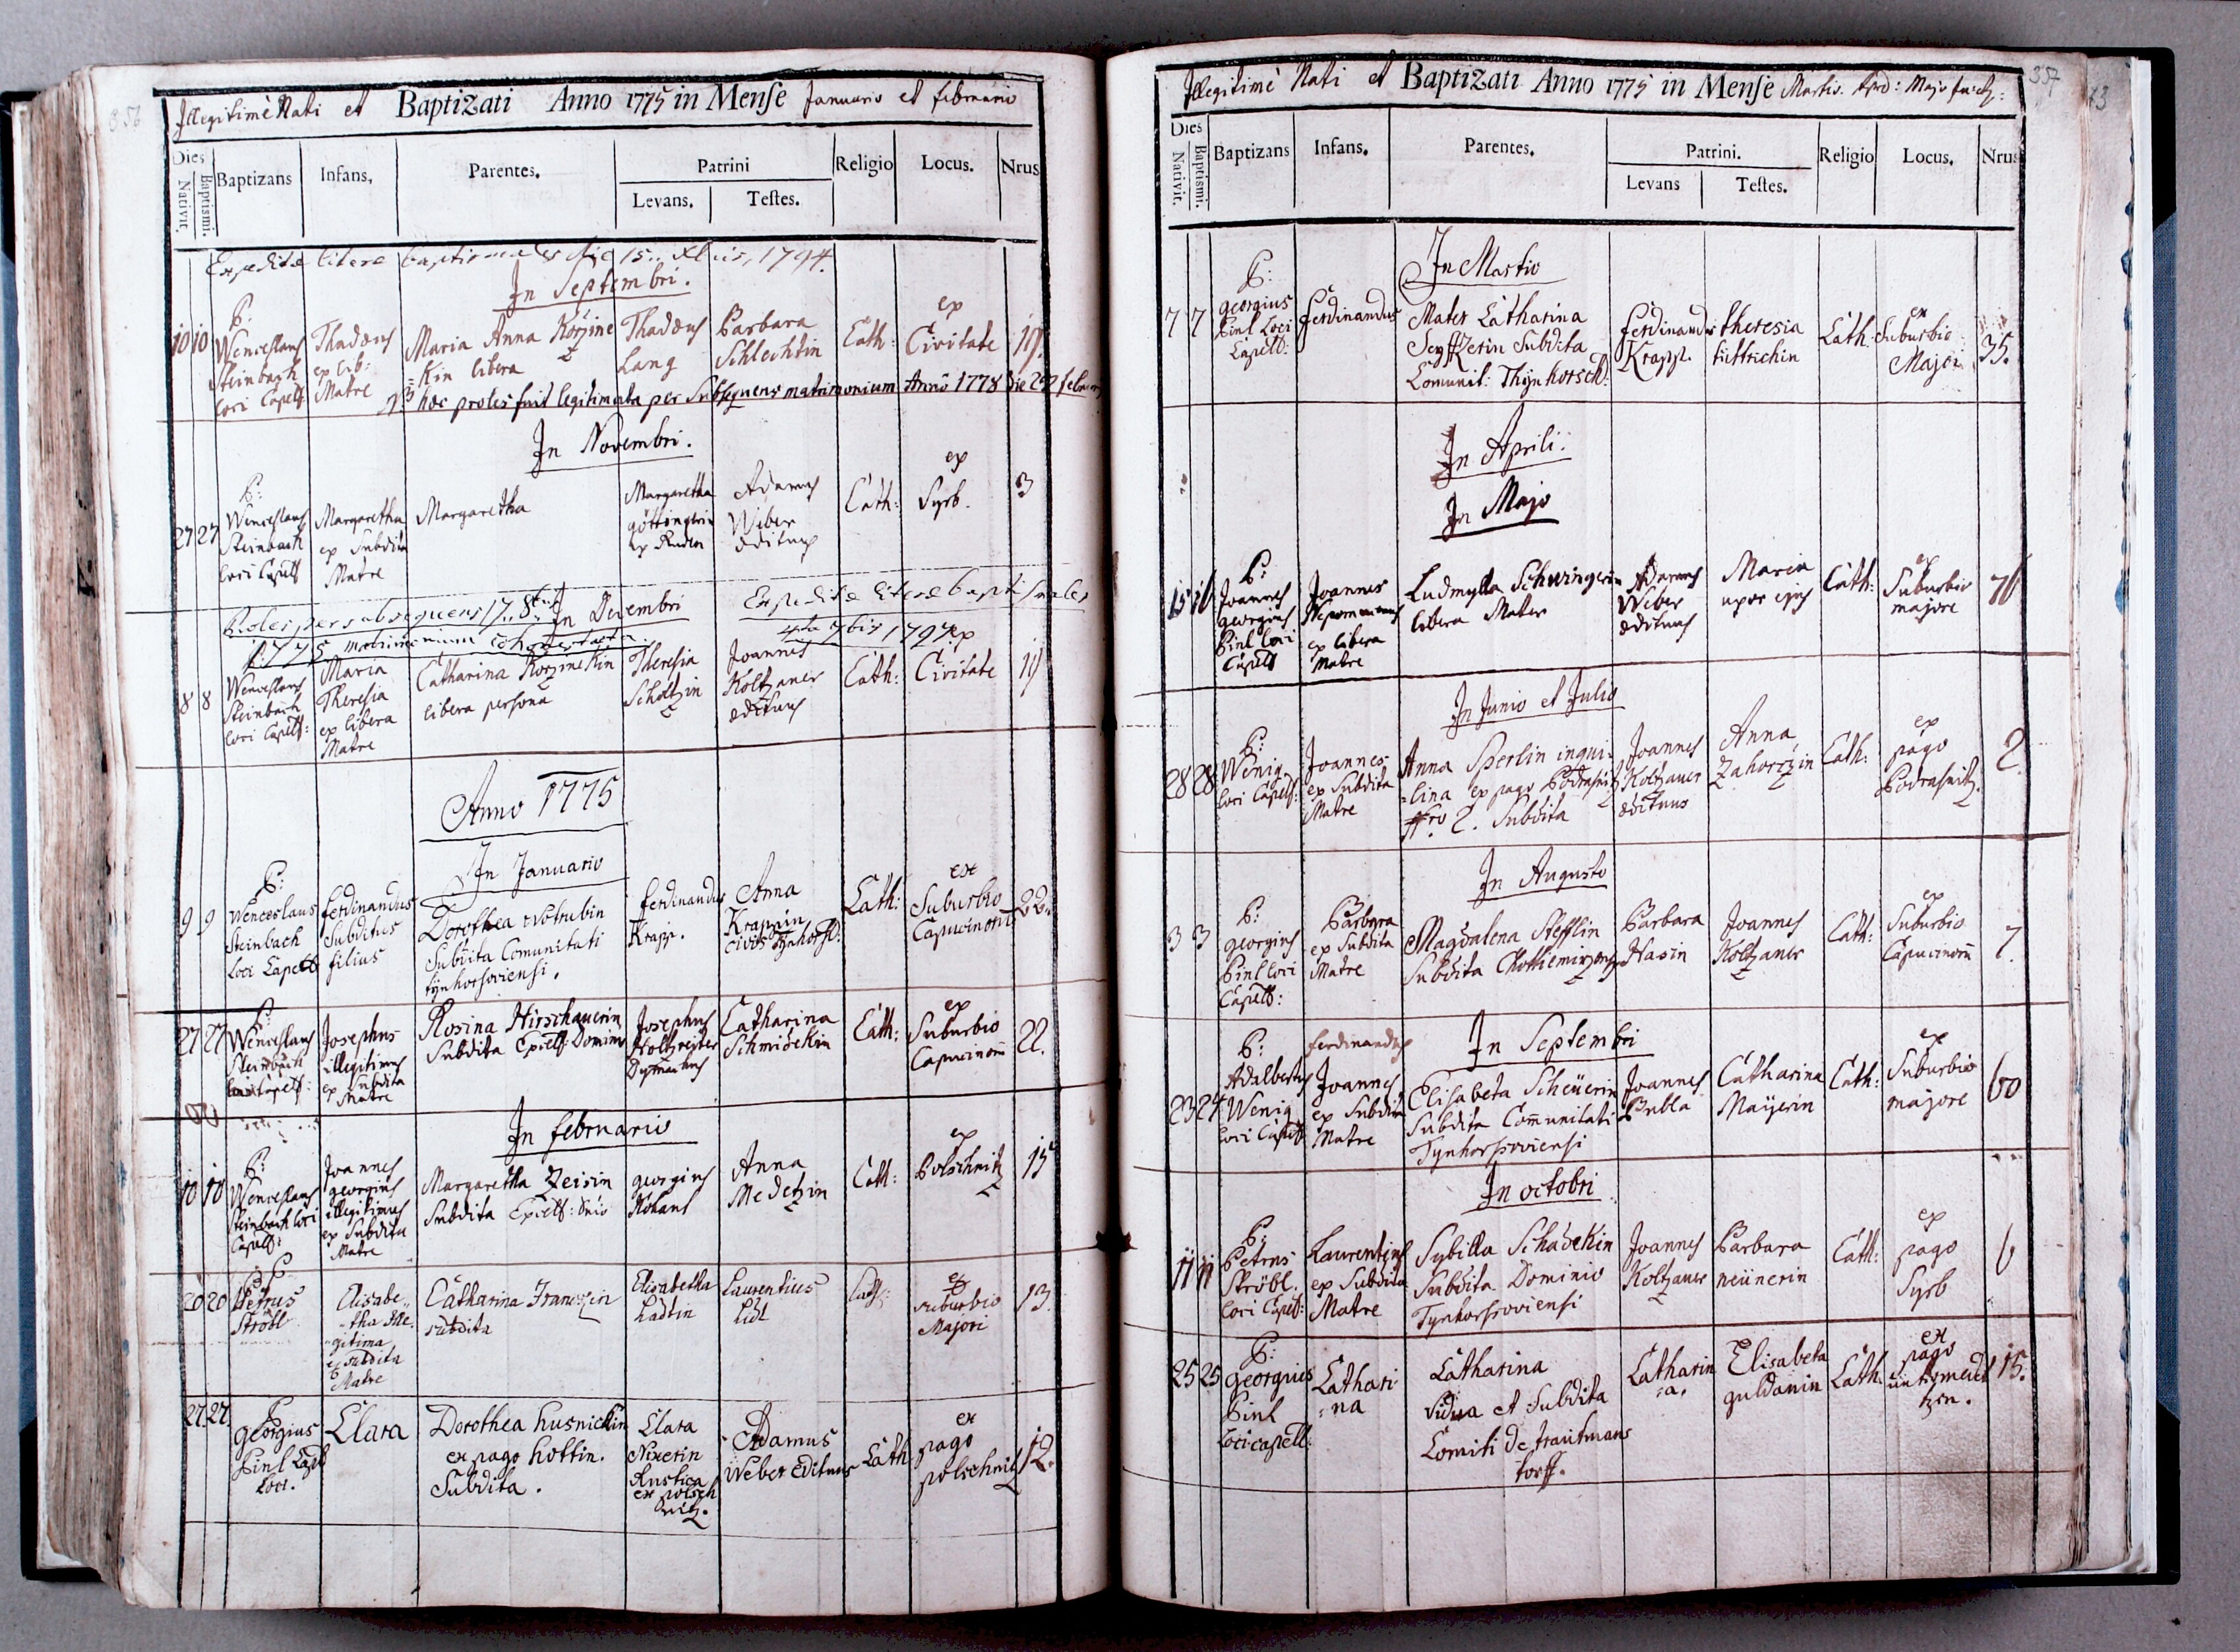 356
Illegitimè Nati et Baptizati Anno 1775 in Menſe Januario et februario
Dies
Nativit.
Baptismi.
Baptizans
Infans.
Parentes.
Patrini
Levans.
Teſtes.
Religio
Locus.
Nrus
Expeditæ literæ baptismales die 15 1794.
In Septembri.
10 10
P:
Wenceslaus
Steinbach
loci Capell:
Thadæus
ex lib:
Matre
Maria Anna Korzine
=kin libera
Thadæus
Lang
Barbara
Schlechtin
Cath:
ex
Civitate
19.
NB hæc proles fuit legitimata per Subsequens matrimonium Anno 1778 die 24 februarii
In Novembri.
27 27
P:
Wenceslaus
Steinbach
loci Capell
Margaretha
ex Subdita
Matre
Margaretha
Margaretha
göttingerin
Adamus
Weber
ædituus
Cath:
ex
Syrb.
3
Proles per subsequens 17 8bris
1775 matrimonium cohonestata
In Decembri
Expeditæ literæ baptismales
4ta 7bris 1797
8 8
Wenceslaus
Steinbach
loci Capell:
Maria
Theresia
ex libera
Matre
Catharina Korzinekin
libera persona
Theresia
Scholtzin
Joannes
Koltzauer
ædituus
Cath:
ex
Civitate
19
Anno 1775
In Januario
9 9
P:
Wenceslaus
Steinbach
Loci Capell
ferdinandus
Subditus
filius
Dorothea Wotrubin
Subdita Comunitati
tynhorsoviensi.
ferdinandus
Krapp.
Anna
Krappin
civis Tynhorss:
Cath:
ex
Suburbio
Capucinorū
22.
27 27
P:
Wenceslaus
Steinbach
loci Capell:
Josephus
illegitimus
ex Subdita
Matre
Rosina Hirschauerin
Subdita Excell: Domino
Josephus
Holtzreiter
Catharina
Schmidekin
Cath:
ex
Suburbio
Capucinorū
22.
In februario
10 10
P:
Wenceslaus
Steinbach loci
Capell:
Joannes
georgius
illegitimus
ex Subdita
Matre
Margaretha Zeisin
Subdita Excell: Dnio
georgius
Kohaut
Anna
Medetzin
Cath:
ex
Polschnitz
15
20 20
P:
Petrus
Ströbl
Elisabe
-tha Ille
gitima
ex subdita
Matre
Catharina Franczin
subdita
Elisabetha
Ladtin
Laurentius
Lidl
Cath:
ex
suburbio
Majori
13.
27 27
P
georgius
Pinl Capll
Loci.
Clara
Dorothea husnickin
ex pago hottin.
Subdita.
Clara
Nixerin
Rustica
ex polsch
nitz.
Adamus
Weber Edituus
Cath:
ex
pago
polschnitz
12.
357
Illegitimè Nati et Baptizati Anno 1775 in Menſe Martio. Apr: Majo
Dies
Nativit.
Baptismi.
Baptizans
Infans.
Parentes.
Patrini.
Levans
Teſtes.
Religio
Locus.
Nrus
In Martio
7 7
P:
georgius
Pinl Loci
Capell:
ferdinandus
Mater Catharina
Seyffzerin Subdita
Comunit: Thÿnhorsch:
ferdinandus
Krapp.
theresia
tüttrichin
Cath:
ex
Suburbio
Majori
35.
In Aprili.
In Majo
15 16
P:
Joannes
georgius
Pinl loci
Capell
Joannes
Nepomucenus
ex libera
Matre
Ludmylla Schwingerin
libera Mater
Adamus
Weber
ædituus
Maria
uxor ejus
Cath:
ex
Suburbio
majore
76
In Junio et Julio
28 28
P:
Wenig
loci Capell:
Joannes
ex Subdita
Matre
Anna Sperlin inqui-
-lina ex pago Podrasnitz
Nro 2. Subdita
Joannes
Koltzauer
ædituus
Anna
Zahorzin
Cath:
ex
pago
Podrasnitz.
2.
In Augusto
3 3
P:
georgius
Pinl loci
Capell:
Barbara
ex Subdita
Matre
Magdalena Stefflin
Subdita
Barbara
Hasin
Joannes
Koltzauer
Cath:
ex
Suburbio
Capucinorū
7.
In Septembri
23 24
P:
Adalbertus
Wenig
loci Capell
ferdinandus
Joannes
ex Subdita
Matre
Elisabeta Scheüerin
Subdita Com̄unitati
Tynhorssoviensi
Joannes
Bubla
Catharina
Maÿerin
Cath:
ex
Suburbio
majore
60
In octobri
11 11
P:
Petrus
Ströbl.
loci Capell:
Laurentius
ex Subdita
Matre
Sybilla Schadekin
Subdita Dominio
Tynhorssoviensi
Joannes
Koltzauer
Barbara
neünerin
Cath:
ex
pago
Syrb
6
25 25
P:
georgius
Pinl
Loci capell:
Cathari-
=na
Catharina
Vidua et Subdita
Comiti de trautmans
torff.
Catharin
=a.
Elisabeta
guldanin
Cath:
ex
pago
15.